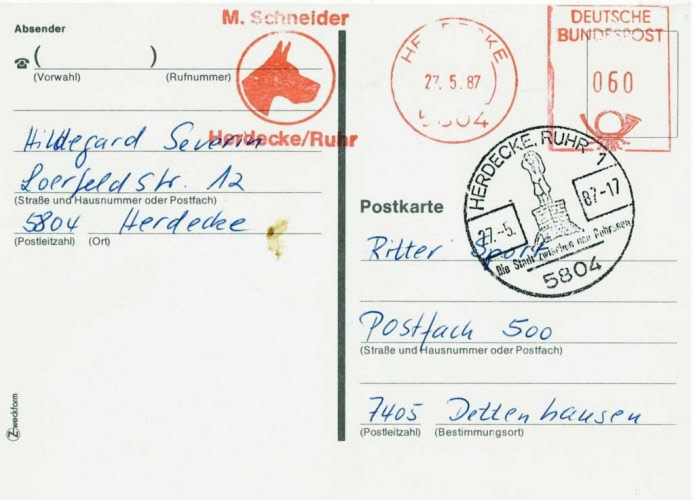 Absender
M. Schneider
Herdecke/Ruhr
(Vorwahl) (Rufnummer)
Hildegard Severin
Loerfeldstr. 12
(Straße und Hausnummer oder Postfach)
5804 Herdecke
(Postleitzahl) (Ort)
zweckform
HERDECKE
27.5.87
5804
DEUTSCHE
BUNDESPOST
060
HERDECKE, RUHR 1
27.-5. 87-17
Die Stadt zwischen den Ruhrseen
5804
Postkarte
Ritter Sport
Postfach 500
(Straße und Hausnummer oder Postfach)
7405 Dettenhausen
(Postleitzahl) (Bestimmungsort)